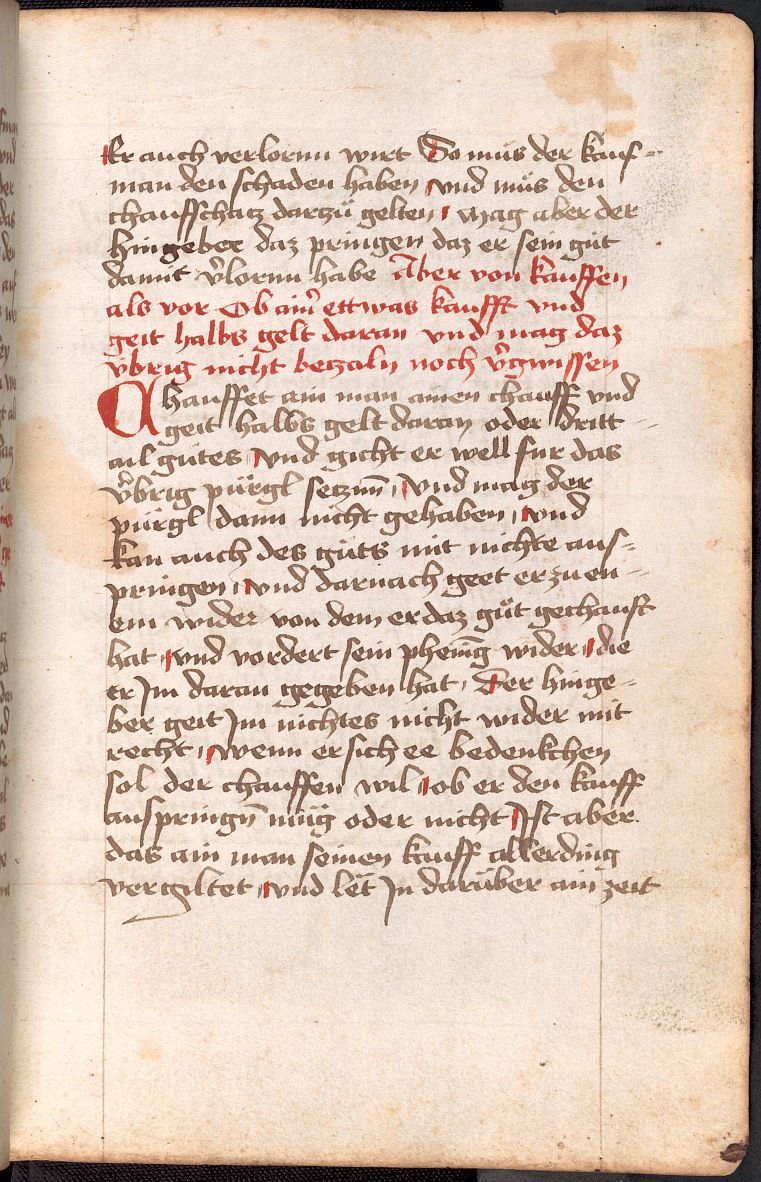 Er auch verlornn wirt So mus der kauf-
man den schaden haben und mus den
chauffschatz dartzů gelten, mag aber der
hingeber daz pringen daz er sein gůt
damit v̉lornn habe Aber von kauffen
als vor Ob ain̉ ettwas kaufft und
geit halbs gelt daran und mag daz
übrig nicht betzaln noch v̉gwissen
Chauffet ain man ainen chauff und
geit halbs gelt daran oder dritt-
ail gutes, und gicht er well fur das
v̉brig pürgl setznn, und mag der
pürgl dann nicht gehaben, und
kan auch des gůts mit nichte aus-
pringen, und darnach geet er zu en-
em wider von dem er daz gůt gechauft
hat, und vordert sein phenīg wider, die
er Im daran gegeben hat, Der hinge-
ber geit Im nichtes nicht wider mit
recht, wenn er sich ee bedenkchen
sol der chauffen wil, ob er den kauff
auspringn̄ müg oder nicht, Ist aber
das ain man seinen kauff allerding
vergiltet, und lět In darüber ain zeit